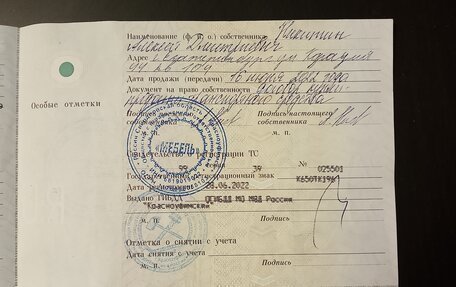 Наименование (ф., и., о.) собственника Никитин
Алексей Дмитриевич
Адрес г. Екатеринбург ул
Дата продажи (передачи) 16 июня 2022 года
Документ на право собственности договор купли-
продажи транспортного средства
Особые отметки
Подпись
собственника
Подпись настоящего
собственника
м. п.
«МЕБЕЛЬ»
Свидетельство о регистрации ТС
99 39 № 025501
Государственный регистрационный знак К650ТК196
Дата регистрации 28.06.2022
Выдано ГИБДД ОГИБДД МО МВД России
"Красноуфимский"
м. п.
Подпись
Отметка о снятии с учета
Дата снятия с учета
м. п.
Подпись